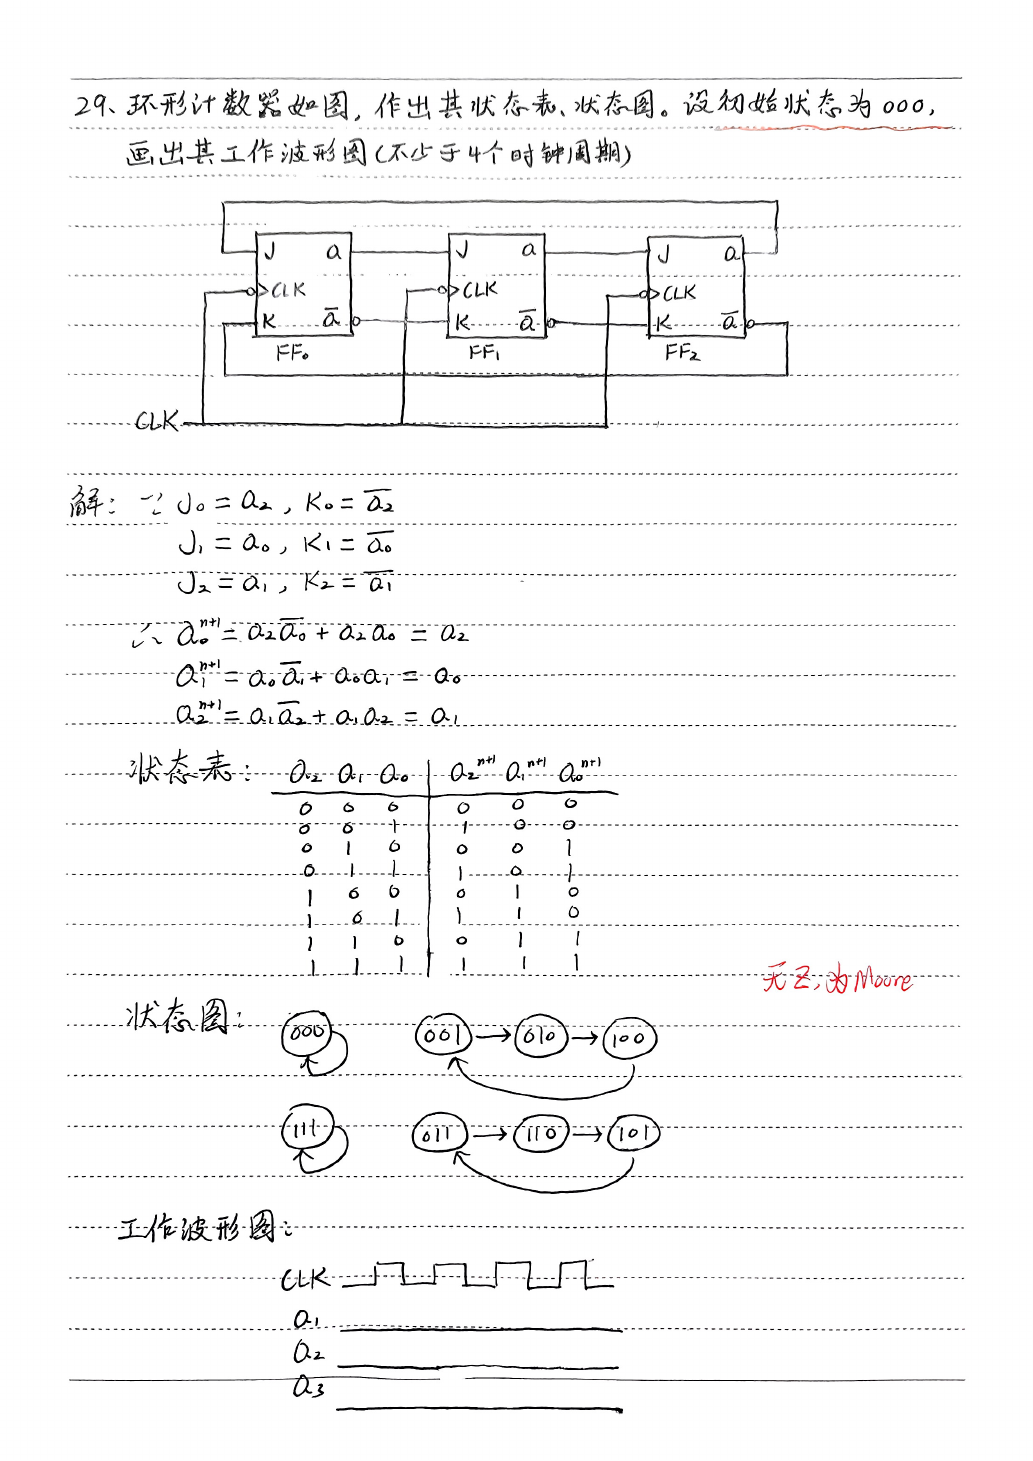 29、环形计数器如图，作出其状态表、状态图。设初始状态为000，
画出其工作波形图(不少于4个时钟周期)
J Q J Q J Q
CLK CLK CLK
K Q̅ K Q̅ K Q̅
FF₀ FF₁ FF₂
CLK
解：∵ J₀ = Q₂ , K₀ = Q̅₂
J₁ = Q₀ , K₁ = Q̅₀
J₂ = Q₁ , K₂ = Q̅₁
∴ Q₀ⁿ⁺¹ = Q₂Q̅₀ + Q₂Q₀ = Q₂
Q₁ⁿ⁺¹ = Q₀Q̅₁ + Q₀Q₁ = Q₀
Q₂ⁿ⁺¹ = Q₁Q̅₂ + Q₁Q₂ = Q₁
状态表： Q₂ Q₁ Q₀ Q₂ⁿ⁺¹ Q₁ⁿ⁺¹ Q₀ⁿ⁺¹
0 0 0 0 0 0
0 0 1 1 0 0
0 1 0 0 0 1
0 1 1 1 0 1
1 0 0 0 1 0
1 0 1 1 1 0
1 1 0 0 1 1
1 1 1 1 1 1
无Z，为Moore
状态图： 000 001 010 100
111 011 110 101
工作波形图：
CLK
Q₁
Q₂
Q₃